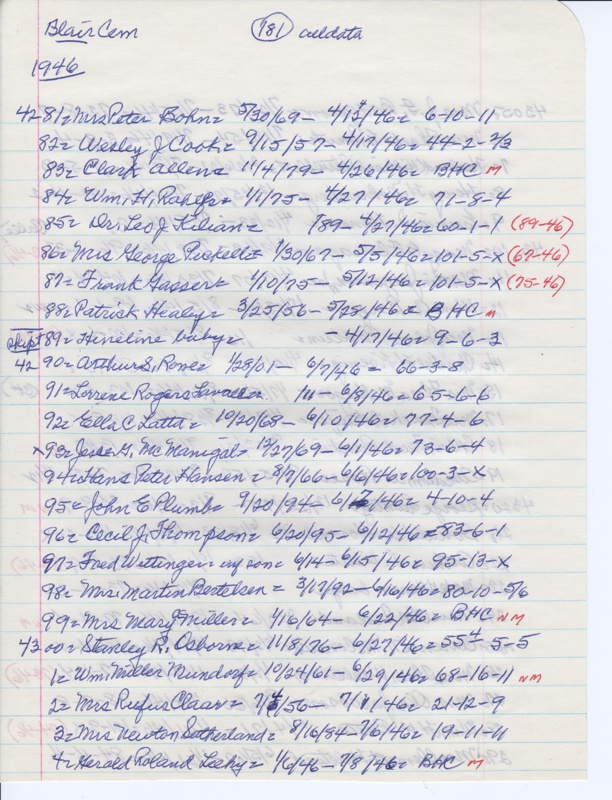 Blair Cem (181) alldata
1946
4281= Mrs Peter Bohn= 5/30/69- 4/12/46= 6-10-11
82= Wesley J Cook= 9/15/57- 4/17/46= 44-2-2/3
83= Clark Allen= 11/4/79- 4/26/46= BHC M
84= Wm. H. 1/1/75- 4/27/46= 71-8-4
85= Dr. Leo J Kilian= 189- 4/27/46= 60-1-1 (89-46)
86= Mrs George 1/30/67- 5/5/46= 101-5-X (67-46)
87= Frank Gasser= 1/10/75- 5/12/46= 101-5-X (75-46)
88= Patrick Healey= 3/25/56- 5/28/46= BHC M
skipt 89= Hineline baby= - 4/17/46= 9-6-3
42 90= Arthur S. Rowe= 1/28/01- 6/7/46= 66-3-8
91= Lorrene Rogers /11- 6/8/46= 65-6-6
92= Ella C Latta= 10/20/68- 6/10/46= 77-4-6
x93= Jesse G. McManigal= 12/27/69- 6/1/46= 73-6-4
94= Hans Peter Hansen= 8/7/66- 6/6/46= 100-3-X
95= John E Plumb= 9/20/74- 6/7/46= 4-10-4
96= Cecil J. Thompson= 6/20/95- 6/12/46= 83-6-1
97= Fred Wettinger inf son= 6/14- 6/15/46= 95-13-X
98= Mrs. Martin Bertelsen= 3/17/92- 6/16/46= 80-10-5/6
99= Mrs Mary J Miller= 1/16/64- 6/22/46= BHC NM
43 00= Stanley R. Osborne= 11/8/76- 6/27/46= 55 4-5-5
1= Wm. Miller Mundorf= 10/24/61- 6/29/46= 68-16-11 NM
2= Mrs Rufus Claar= 7/4/56- 7/1/46= 21-12-9
3= Mrs Newton Sutherland= 8/16/84- 7/6/46= 19-11-11
4= Herald Roland 1/6/46- 7/8/46= BHC M